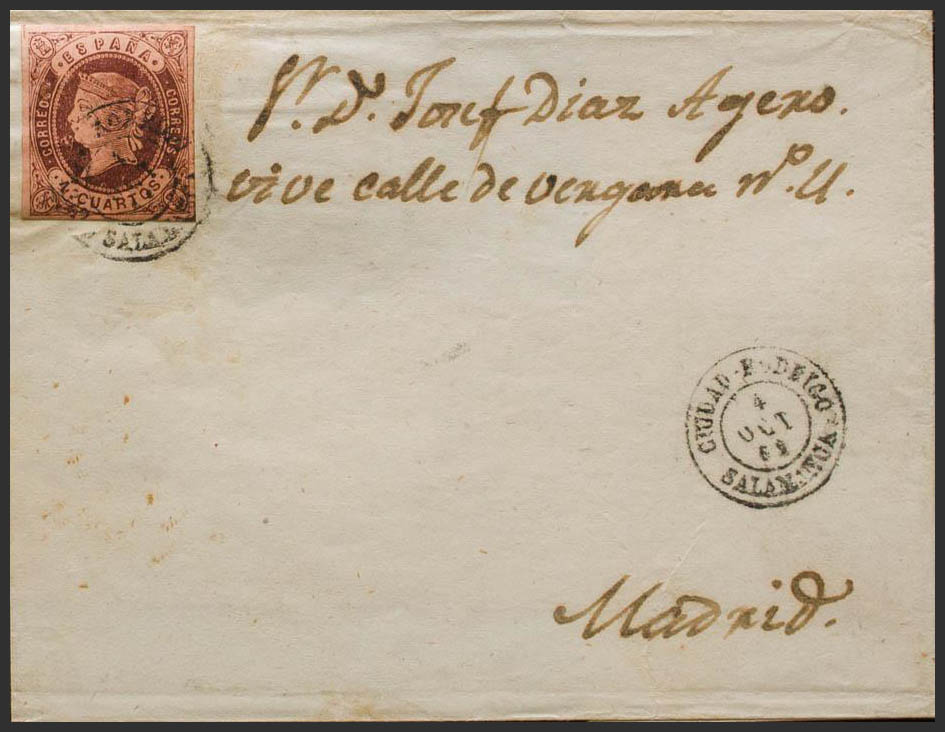 · ESPAÑA ·
CORREOS
CORREOS
4 · CUARTOS ·
SALAM
Sr. Dn. Josef Diaz Agero.
vive calle de vergara nº. 4.
CIUDAD-RODRIGO
4
OCT
62
SALAMANCA
Madrid.